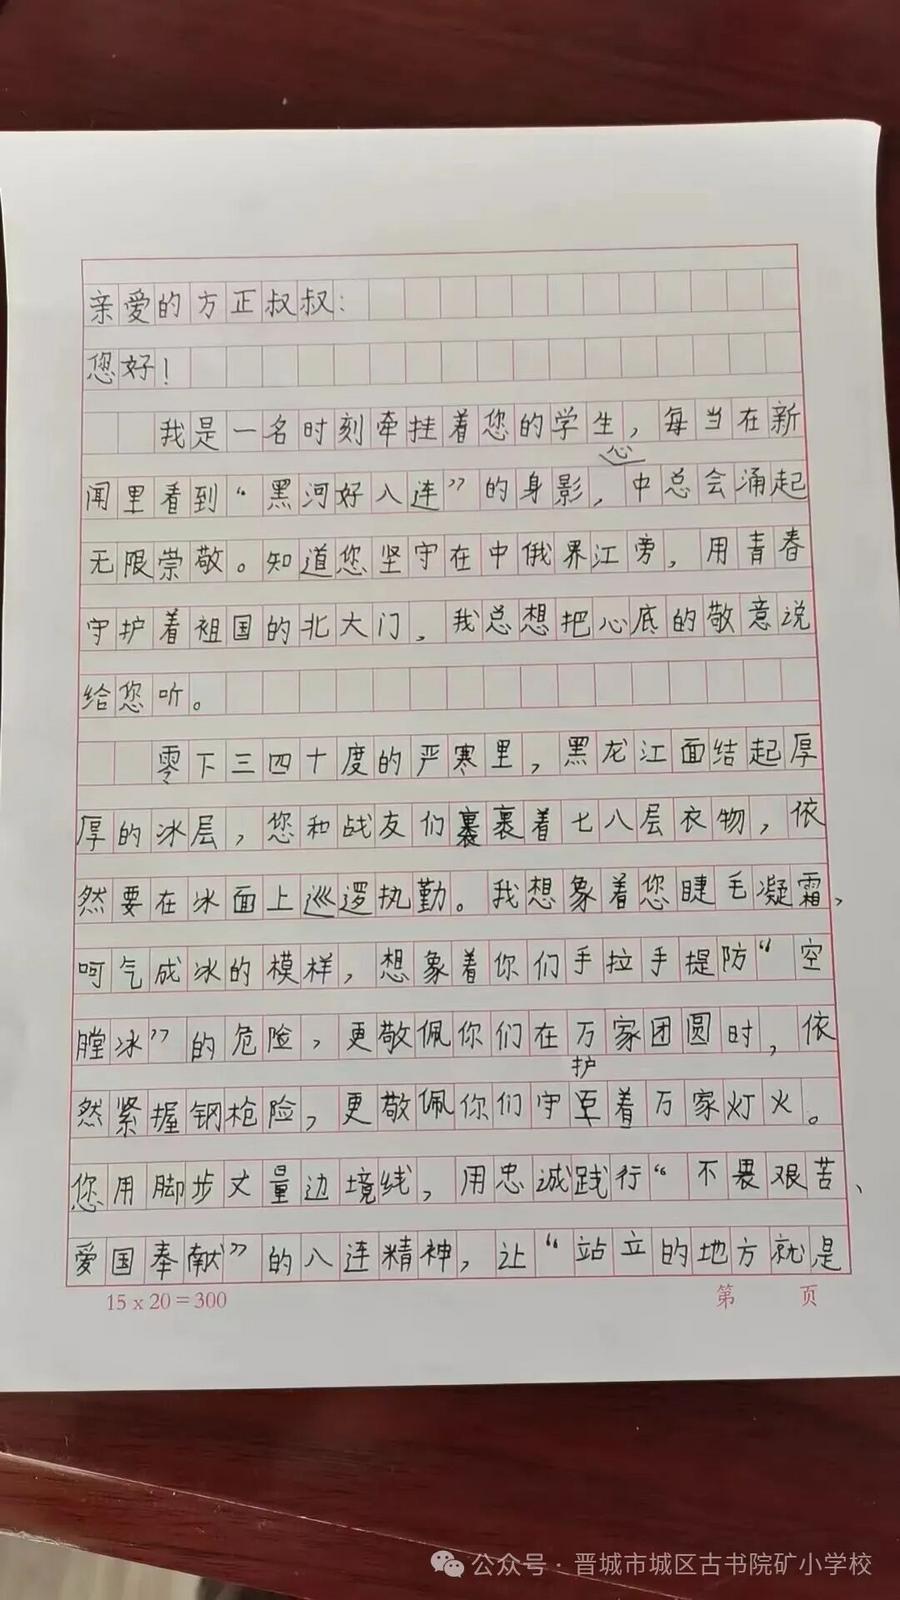 亲爱的方正叔叔：
您好！
我是一名时刻牵挂着您的学生，每当在新
闻里看到“黑河好八连”的身影，心中总会涌起
无限崇敬。知道您坚守在中俄界江旁，用青春
守护着祖国的北大门，我总想把心底的敬意说
给您听。
零下三四十度的严寒里，黑龙江面结起厚
厚的冰层，您和战友们裹裹着七八层衣物，依
然要在冰面上巡逻执勤。我想象着您睫毛凝霜、
呵气成冰的模样，想象着你们手拉手提防“空
膛冰”的危险，更敬佩你们在万家团圆时，依
然紧握钢枪险，更敬佩你们守护着万家灯火。
您用脚步丈量边境线，用忠诚践行“不畏艰苦、
爱国奉献”的八连精神，让“站立的地方就是
15 x 20 = 300
第 页
公众号·晋城市城区古书院矿小学校